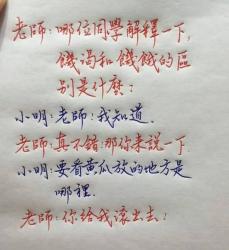 老師：哪位同學解釋一下，
饑渴和饑餓的區
別是什麼：
小明：老師：我知道．
老師：真不錯：那你来説一下
小明：要看黄瓜放的地方是
哪裡．
老師：你给我滚出去！